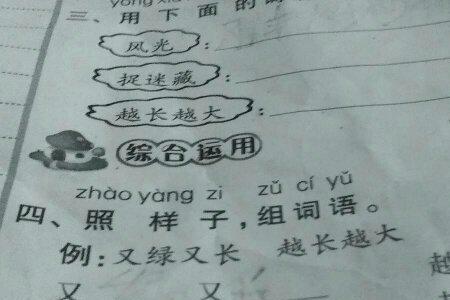 三、用下面的
风光：
捉迷藏：
越长越大：
综合运用
zhào yàng zi zǔ cí yǔ
四、照样子,组词语。
例：又绿又长 越长越大
又 又 越